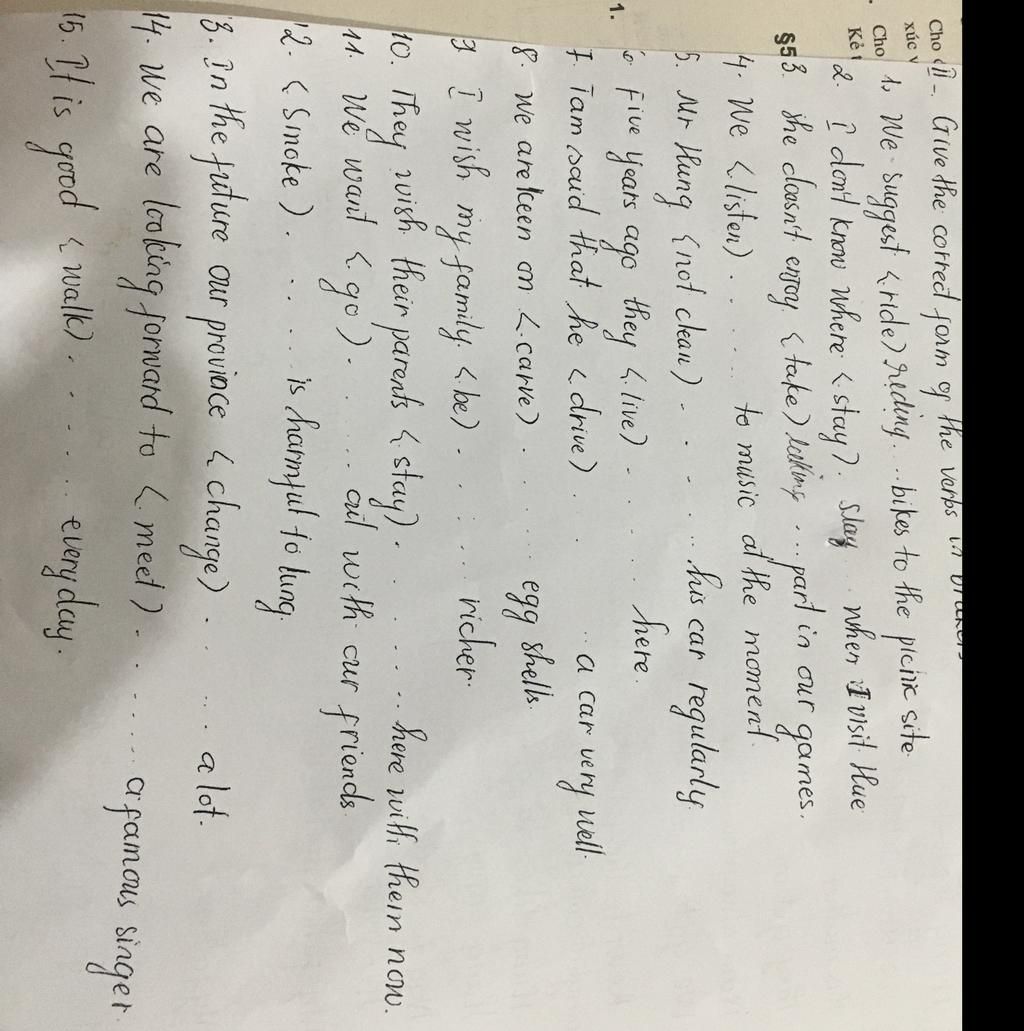 Cho
xúc v
Cho
Kẻ
§5
1.
II-. Give the correct form of the verbs in brakers
1, We suggest (ride) reding .. bikes to the picnic site
2. I don't know where (stay). stay ... when I visit Hue
3. She doesn't enjoy (take) ... part in our games.
4. We (listen) ..... to music at the moment.
5. Mr Hung (not clean) ..... his car regularly
6. Five years ago they (live) ..... here.
7. Tam said that he (drive) .... a car very well.
8. We are keen on (carve) ..... egg shells.
9. I wish my family (be) ..... richer.
10. They wish their parents (stay) ...... here with them now.
11. We want (go) ..... out with our friends
12. (Smoke) ..... is harmful to lung.
13. In the future our proviace (change) ..... a lot.
14. We are looking forward to (meet) ....... a famous singer
15. It is good (walk) ..... everyday.